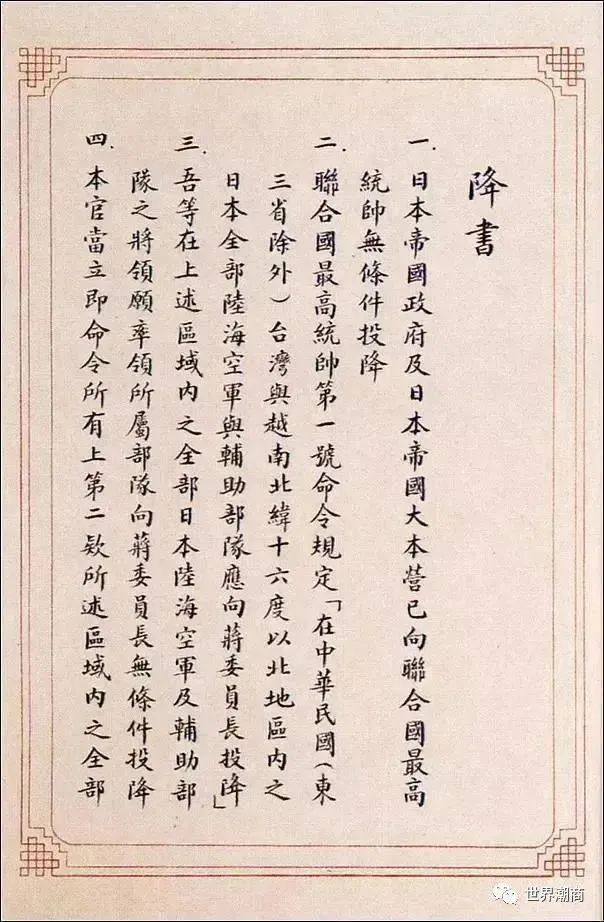 降書
一.日本帝國政府及日本帝國大本營已向聯合國最高
統帥無條件投降
二.聯合國最高統帥第一號命令規定「在中華民國(東
三省除外)台灣與越南北緯十六度以北地區內之
日本全部陸海空軍與輔助部隊應向蔣委員長投降」
三.吾等在上述區域內之全部日本陸海空軍及輔助部
隊之將領願率領所屬部隊向蔣委員長無條件投降
四.本官當立即命令所有上第二款所述區域內之全部
世界潮商